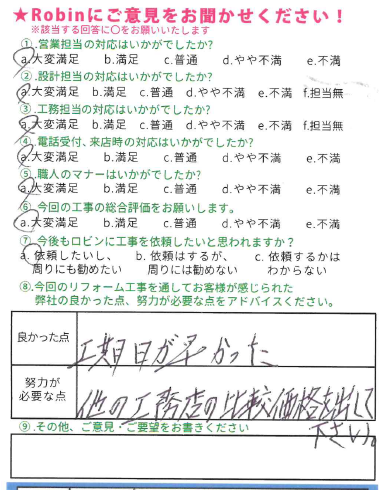 ★Robinにご意見をお聞かせください！
※該当する回答に〇をお願いいたします
①.営業担当の対応はいかがでしたか?
a.大変満足 b.満足 c.普通 d.やや不満 e.不満
②.設計担当の対応はいかがでしたか?
a.大変満足 b.満足 c.普通 d.やや不満 e.不満 f.担当無
③.工務担当の対応はいかがでしたか?
a.大変満足 b.満足 c.普通 d.やや不満 e.不満 f.担当無
④.電話受付、来店時の対応はいかがでしたか?
a.大変満足 b.満足 c.普通 d.やや不満 e.不満
⑤.職人のマナーはいかがでしたか?
a.大変満足 b.満足 c.普通 d.やや不満 e.不満
⑥.今回の工事の総合評価をお願いします。
a.大変満足 b.満足 c.普通 d.やや不満 e.不満
⑦.今後もロビンに工事を依頼したいと思われますか？
a. 依頼したいし、 b. 依頼はするが、 c. 依頼するかは
周りにも勧めたい 周りには勧めない わからない
⑧.今回のリフォーム工事を通してお客様が感じられた
弊社の良かった点、努力が必要な点をアドバイスください。
良かった点 工期日が早かった
努力が
必要な点 他の工務店の比較価格を出して
下さい。
⑨.その他、ご意見・ご要望をお書きください